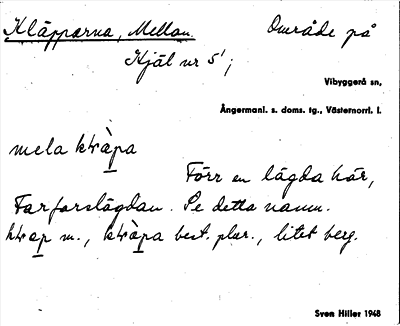 Kläpparna, Mellan. Område på
Hjäl nr 5¹;
Vibyggerå sn,
Ångermanl. s. doms. tg., Västernorrl. l.
mela kɫràpa
Förr en lägda här,
Farforslägdan. Se detta namn.
kɫrap m., kɫràpa best. plur., litet berg.
Sven Hiller 1948